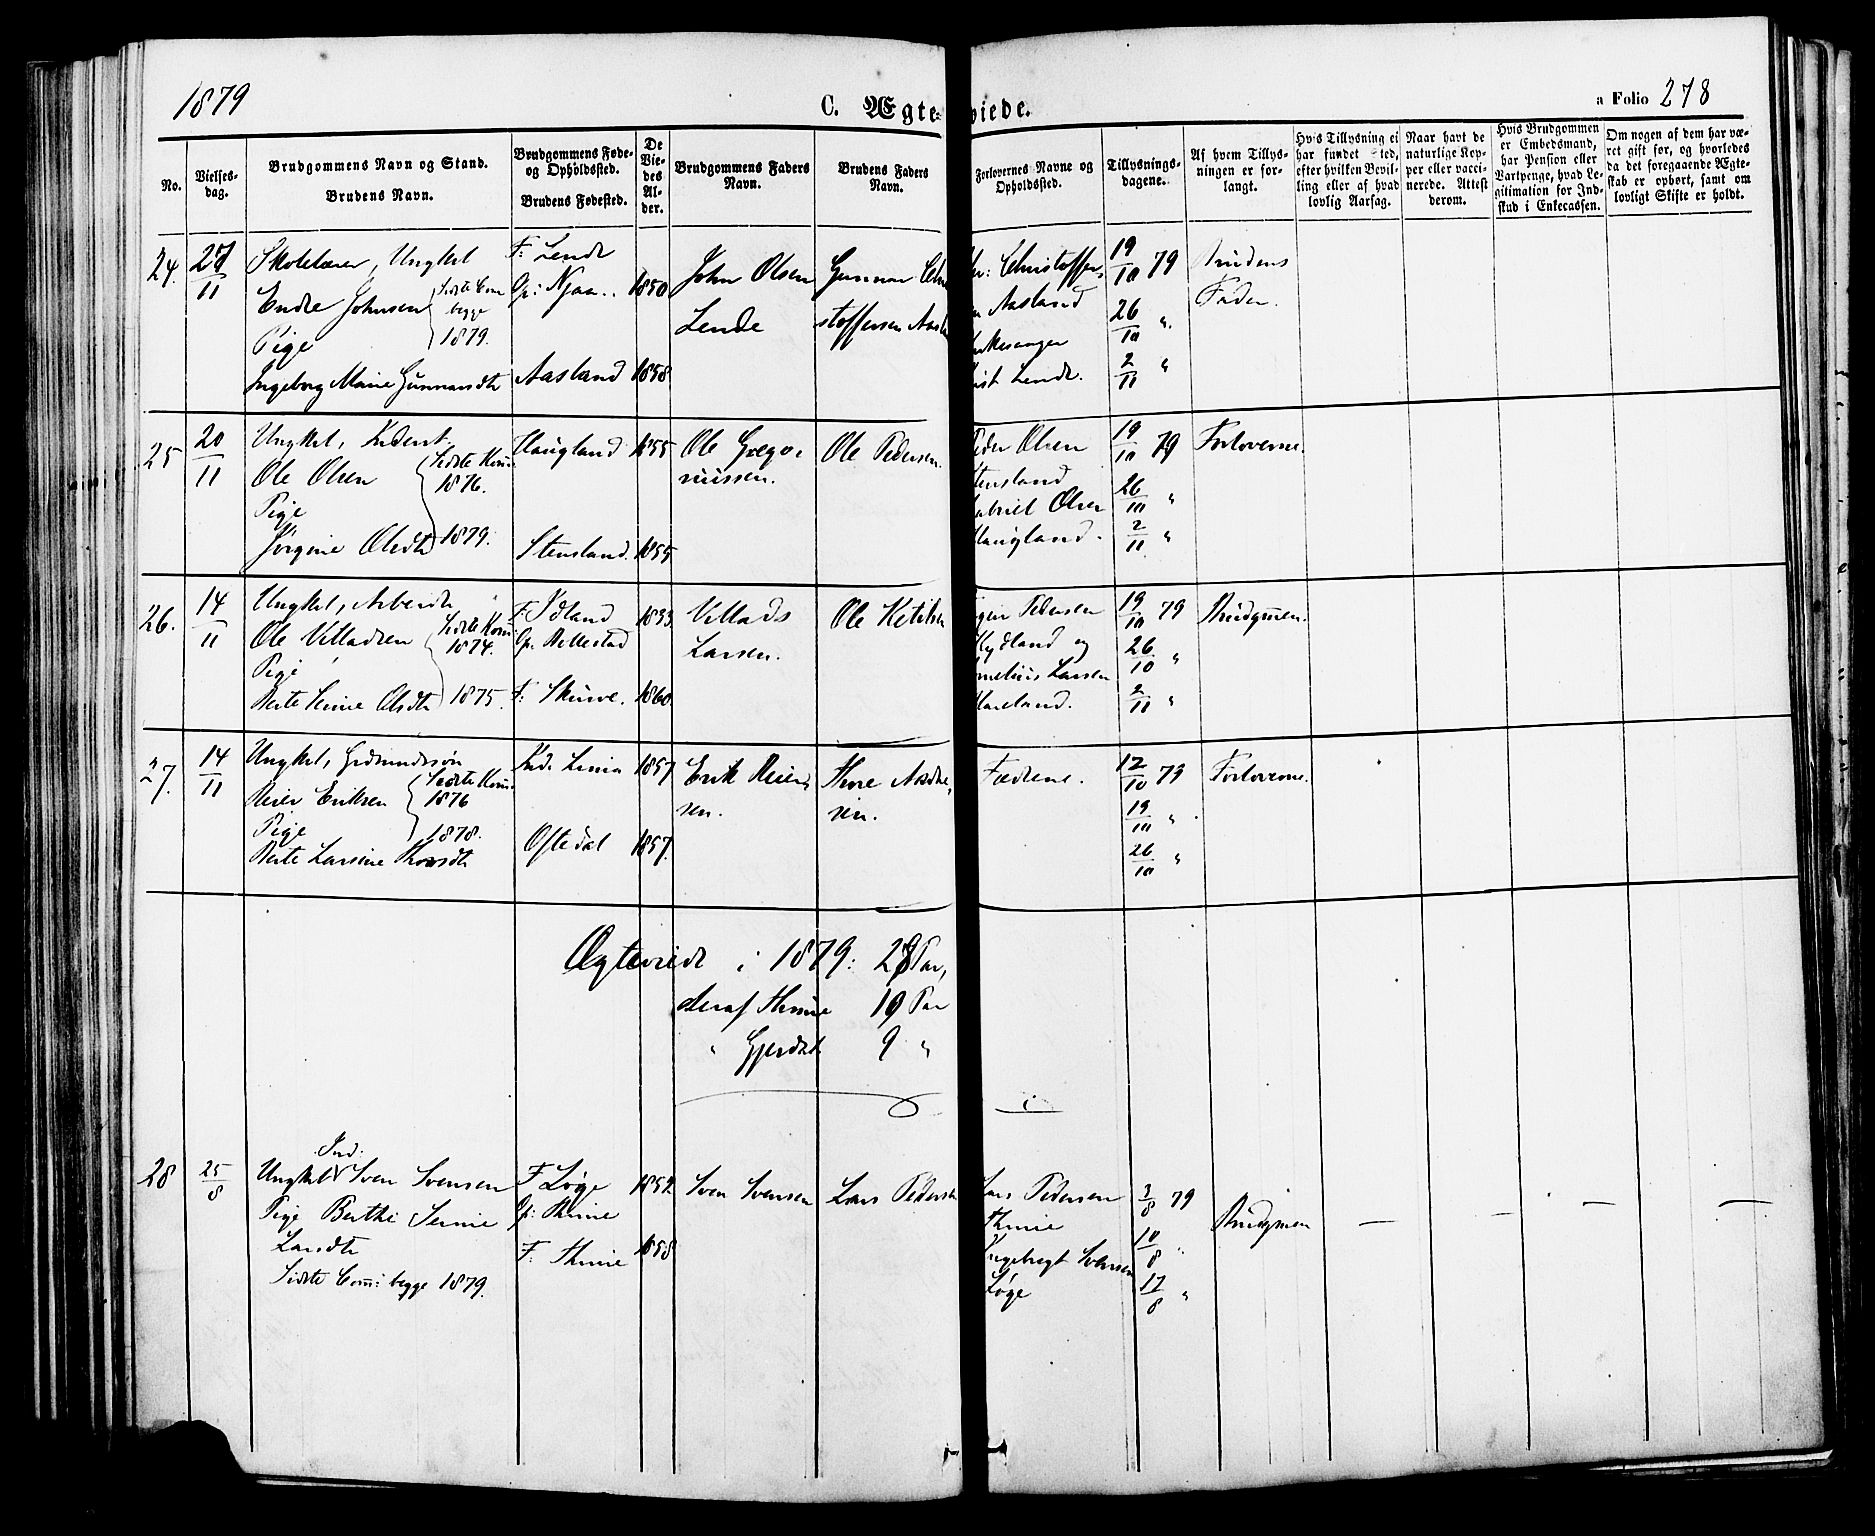 1879
C. Ægteviede.
a Folio 278
No.
Vielsesdag.
Brudgommens Navn og Stand.
Brudens Navn.
Brudgommens Føde- og Opholdssted.
Brudens Fødested.
De Viedes Alder.
Brudgommens Faders Navn.
Brudens Faders Navn.
Forlovernes Navne og Opholdssted.
Tillysningsdagene.
Af hvem Tillysningen er forlangt.
Hvis Tillysning ei har fundet Sted, efter hvilken Bevilling eller af hvad lovlig Aarsag.
Naar havt de naturlige Kopper eller vaccinerede. Attest derom.
Hvis Brudgommen er Embedsmand, har Pension eller Vartpenge, hvad Legitimation for Indskud i Enkecassen.
Om nogen af dem har været gift før, og hvorledes da det foregaaende Ægteskab er ophørt, samt om lovligt Skifte er holdt.
24.
27/11
Skolelærer, Ungkel
Endre Johnsen
Pige
Ingeborg Marie Gunnarsdtr
Sidste Com
begge
1879.
F: Lende
Op: Njaa
Aasland
1850
1858
John Olsen
Lende
Gunnar Chri
stoffersen Aasla
Christoffers
Aasland
Kirkesanger
Lende.
19/10 79
26/10 "
2/11 "
Brudens
Fader.
25
20/11
Ungkel, Inderst
Ole Olsen
Pige
Jørgine Olsdtr
Sidste Kom:
1876.
1879.
Haugland
Stensland.
1855
1855
Ole Grego
riussen.
Ole Pedersen.
Peder Olsen
Stensland
Gabriel Olsen
Haugland.
19/10 79
26/10 "
2/11 "
Forloverne.
26.
14/11
Ungkel, Arbeidr
Ole Villadsen
Pige
Berte Serine Olsdtr
Sidste Kom:
1874.
1875.
F: Ydland
Op: Vellestad
F: Skurve.
1833
1860.
Villads
Larsen.
Ole Ketilsen
Pedersen
og
nelius Larsen
19/10 79
26/10 "
2/11 "
Brudgmen.
27.
14/11
Ungkel, Grdmandssøn
Reier Eriksen
Pige
Berte Larsine Thorsdtr
Sidste Kom:
1876
1878.
Ind. Lima
Oftedal
1857
1857.
Erik Reier
sen.
Thore Asche
sen.
Fædrene.
12/10 79
19/10 "
26/10 "
Forloverne.
Ægteviede i 1879: 28 Par,
deraf Thime 19 Par
" Gjesdal 9 "
28
25/8
Ind:
Ungkel Sven Svensen
Pige Berthe Serine
Larsdtr
Sidste Com: begge 1879.
F. Løge
Op: Thime
F. Thime
1852
1858
Sven Svensen
Lars Pedersen
Lars Pedersen
Thime
Ingebregt Svensen
Løge
3/8 79
10/8 "
17/8 "
Brudgmen